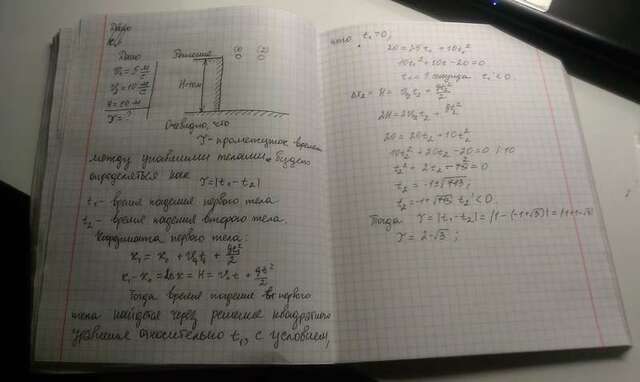 Дано
Дано
Решение
(1) (2)
V₁ = 5 м/с
V₂ = 10 м/с
H = 10 м
τ - ?
H = 10 м
Очевидно, что
τ - промежуток времени
между упавшими телами, будет
определяться как
τ = |t₁ - t₂|
t₁ - время падения первого тела
t₂ - время падения второго тела.
Координата первого тела:
x₁ = x₀ + V₁t + gt²/2
x₁ - x₀ = Δx = H = V₁t + gt²/2
Тогда время падения первого
тела найдется через решение квадратного
уравнения относительно t₁, с условием,
что t₁ > 0,
10t₁² + 10t - 20 = 0
t₁ = 1 секунда t₁' < 0.
Δx₂ = H = V₂t₂ + gt₂²/2
20 = 20t₂ + 10t₂²
10t₂² + 20t₂ - 20 = 0 | :10
t₂' < 0.
Тогда τ = |t₁ - t₂| = |1 - (-1+√3)| = |1+1-√3|
τ = 2 - √3 ;